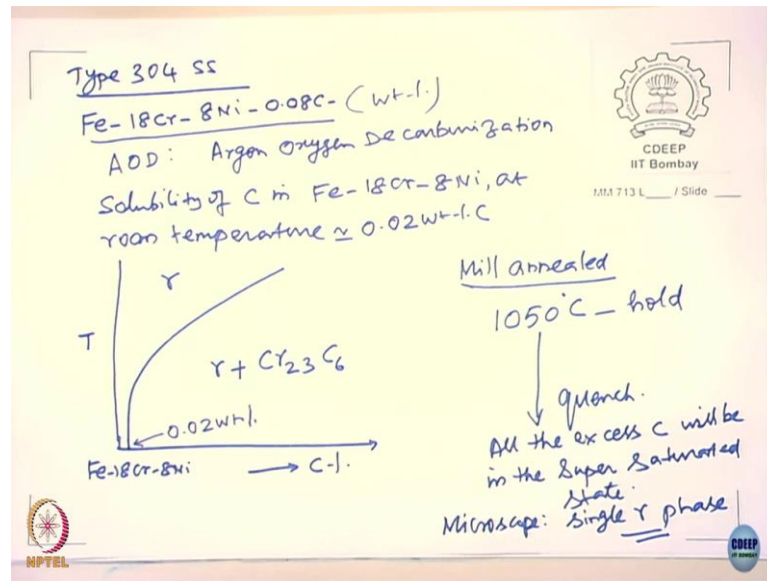 Type 304 SS
Fe-18Cr-8Ni-0.08C-(wt-%)
AOD: Argon Oxygen Decarbunization
Solubility of C in Fe-18Cr-8Ni, at
room temperature ≃ 0.02wt-%C
T
γ
γ + Cr23C6
0.02wt%
Fe-18Cr-8Ni → C-%
Mill annealed
1050°C - hold
quench.
All the excess C will be
in the Super Saturated
state.
Microscope: single γ phase
CDEEP
IIT Bombay
MM 713 L___ / Slide ___
NPTEL
CDEEP
IIT BOMBAY